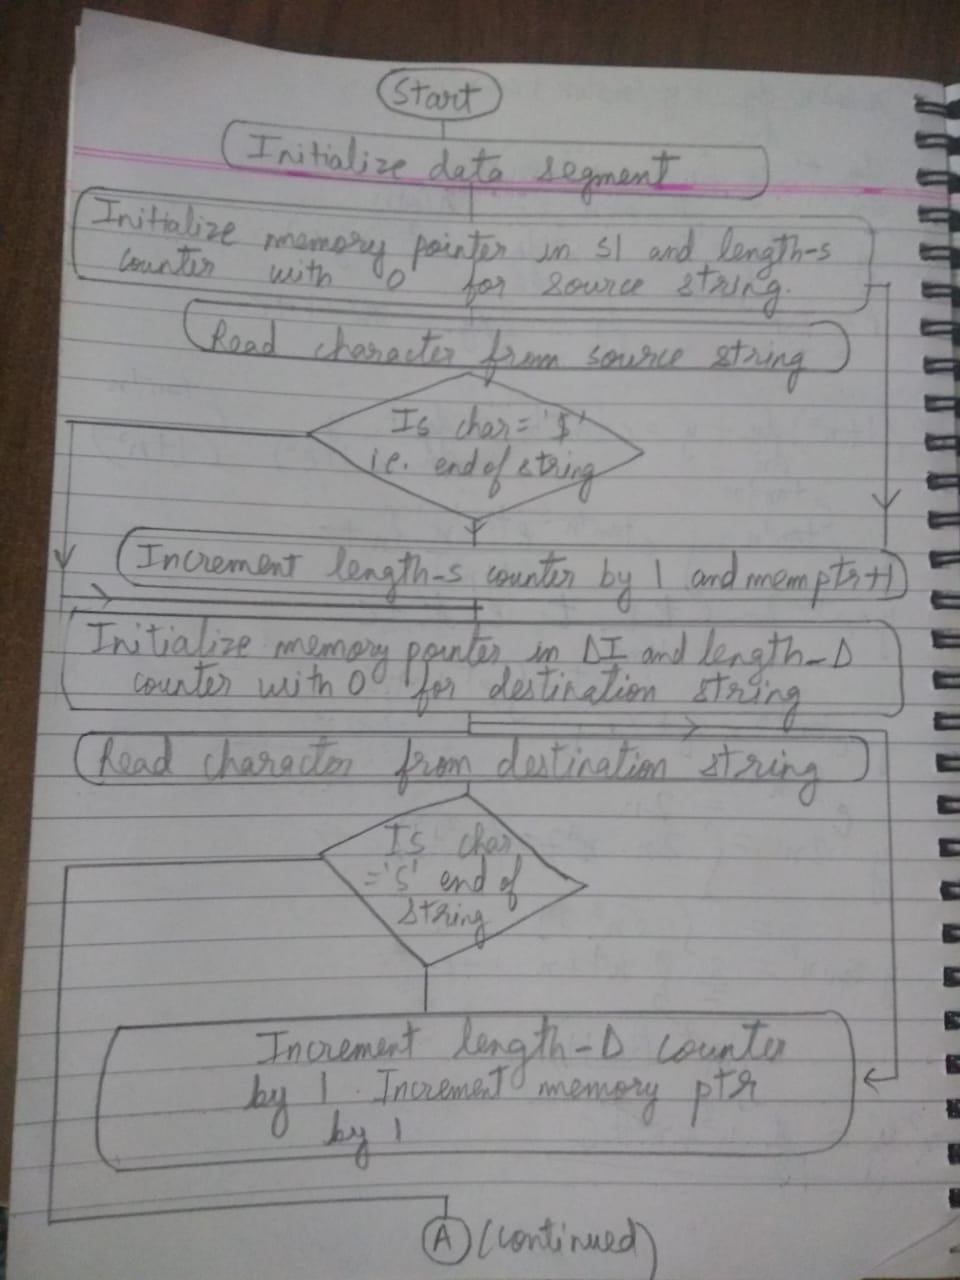 Start
Initialize data segment
Initialize memory pointer in SI and length-s
counter with 0 for source string.
Read character from source string
Is char = '$'
i.e. end of string
Increment length-s counter by 1 and mem ptr+1
Initialize memory pointer in DI and length-D
counter with 0 for destination string
Read character from destination string
Is char
='$' end of
string
Increment length-D counter
by 1. Increment memory ptr
by 1
A (continued)